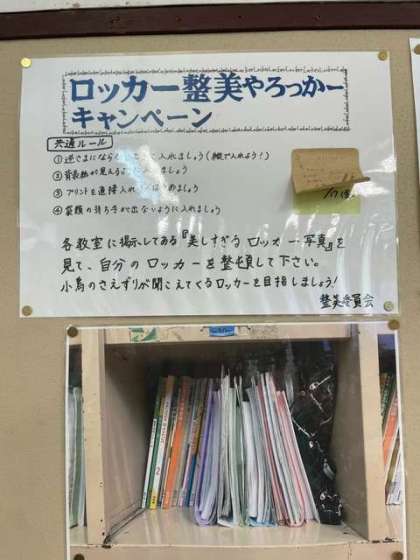 ロッカー整美やろっかー
キャンペーン
共通ルール
①逆さまにならな 入れましょう(縦で入れよう!)
②背表紙が見えるよ ましょう
③プリントを直接入れ めましょう
④袋類の持ち手が出ないように入れましょう
各教室に掲示してある『美しすぎる ロッカー写真』を
見て、自分のロッカーを整頓して下さい。
小鳥のさえずりが聞こえてくるロッカーを目指しましょう!
整美委員会